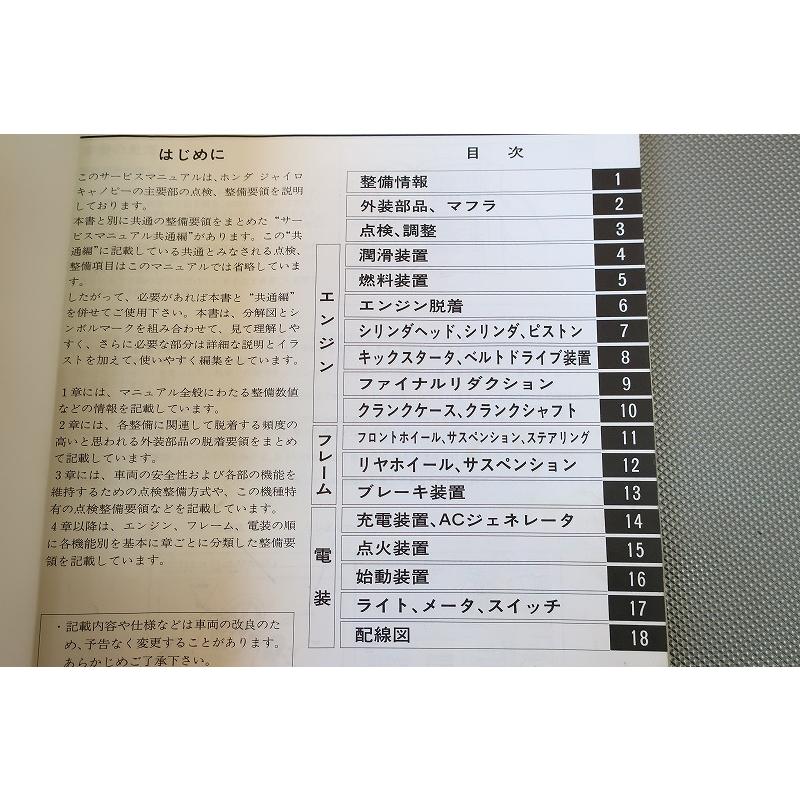 はじめに
このサービスマニュアルは、ホンダ ジャイロ
キャノピーの主要部の点検、整備要領を説明
しております。
本書と別に共通の整備要領をまとめた “サー
ビスマニュアル共通編”があります。この“共
通編”に記載している共通とみなされる点検、
整備項目はこのマニュアルでは省略していま
す。
したがって、必要があれば本書と “共通編”
を併せてご使用下さい。本書は、分解図とシ
ンボルマークを組み合わせて、見て理解しや
すく、さらに必要な部分は詳細な説明とイラ
ストを加えて、使いやすく編集をしています。
1章には、マニュアル全般にわたる整備数値
などの情報を記載しています。
2章には、各整備に関連して脱着する頻度の
高いと思われる外装部品の脱着要領をまとめ
て記載しています。
3章には、車両の安全性および各部の機能を
維持するための点検整備方式や、この機種特
有の点検整備要領などを記載しています。
4章以降は、エンジン、フレーム、電装の順
に各機能別を基本に章ごとに分類した整備要
領を記載しています。
・記載内容や仕様などは車両の改良のた
め、予告なく変更することがあります。
あらかじめご了承下さい。
目 次
整備情報 1
外装部品、マフラ 2
点検、調整 3
エンジン
潤滑装置 4
燃料装置 5
エンジン脱着 6
シリンダヘッド、シリンダ、ピストン 7
キックスタータ、ベルトドライブ装置 8
ファイナルリダクション 9
クランクケース、クランクシャフト 10
フレーム
フロントホイール、サスペンション、ステアリング 11
リヤホイール、サスペンション 12
ブレーキ装置 13
電装
充電装置、ACジェネレータ 14
点火装置 15
始動装置 16
ライト、メータ、スイッチ 17
配線図 18